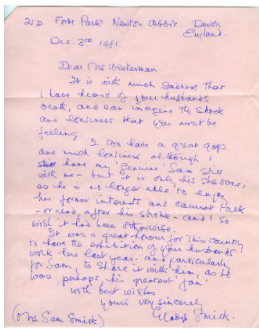 Forde Park Newton Abbot Devon
England.
Dec. 3rd 1981
Dear Mrs Westerman
It is with much sadness that
I have heard of your husbands
death, and can imagine the shock
and loneliness that you must be
feeling.
I too have a great gap
and much loneliness although I
still have my "genius" Sam still
with me - but it is only his shadow,
as he is no longer able to enjoy
his former interests and cannot talk
- or read, after his stroke - and I so
wish it had been otherwise.
It was a great honour for this country
to have the exhibition of your husbands
work here last year - and particularly
for Sam, to share it with him, as he
was, perhaps his greatest 'fan'.
with best wishes
yours very sincerely
Gladys Smith.
(Mrs Sam Smith)